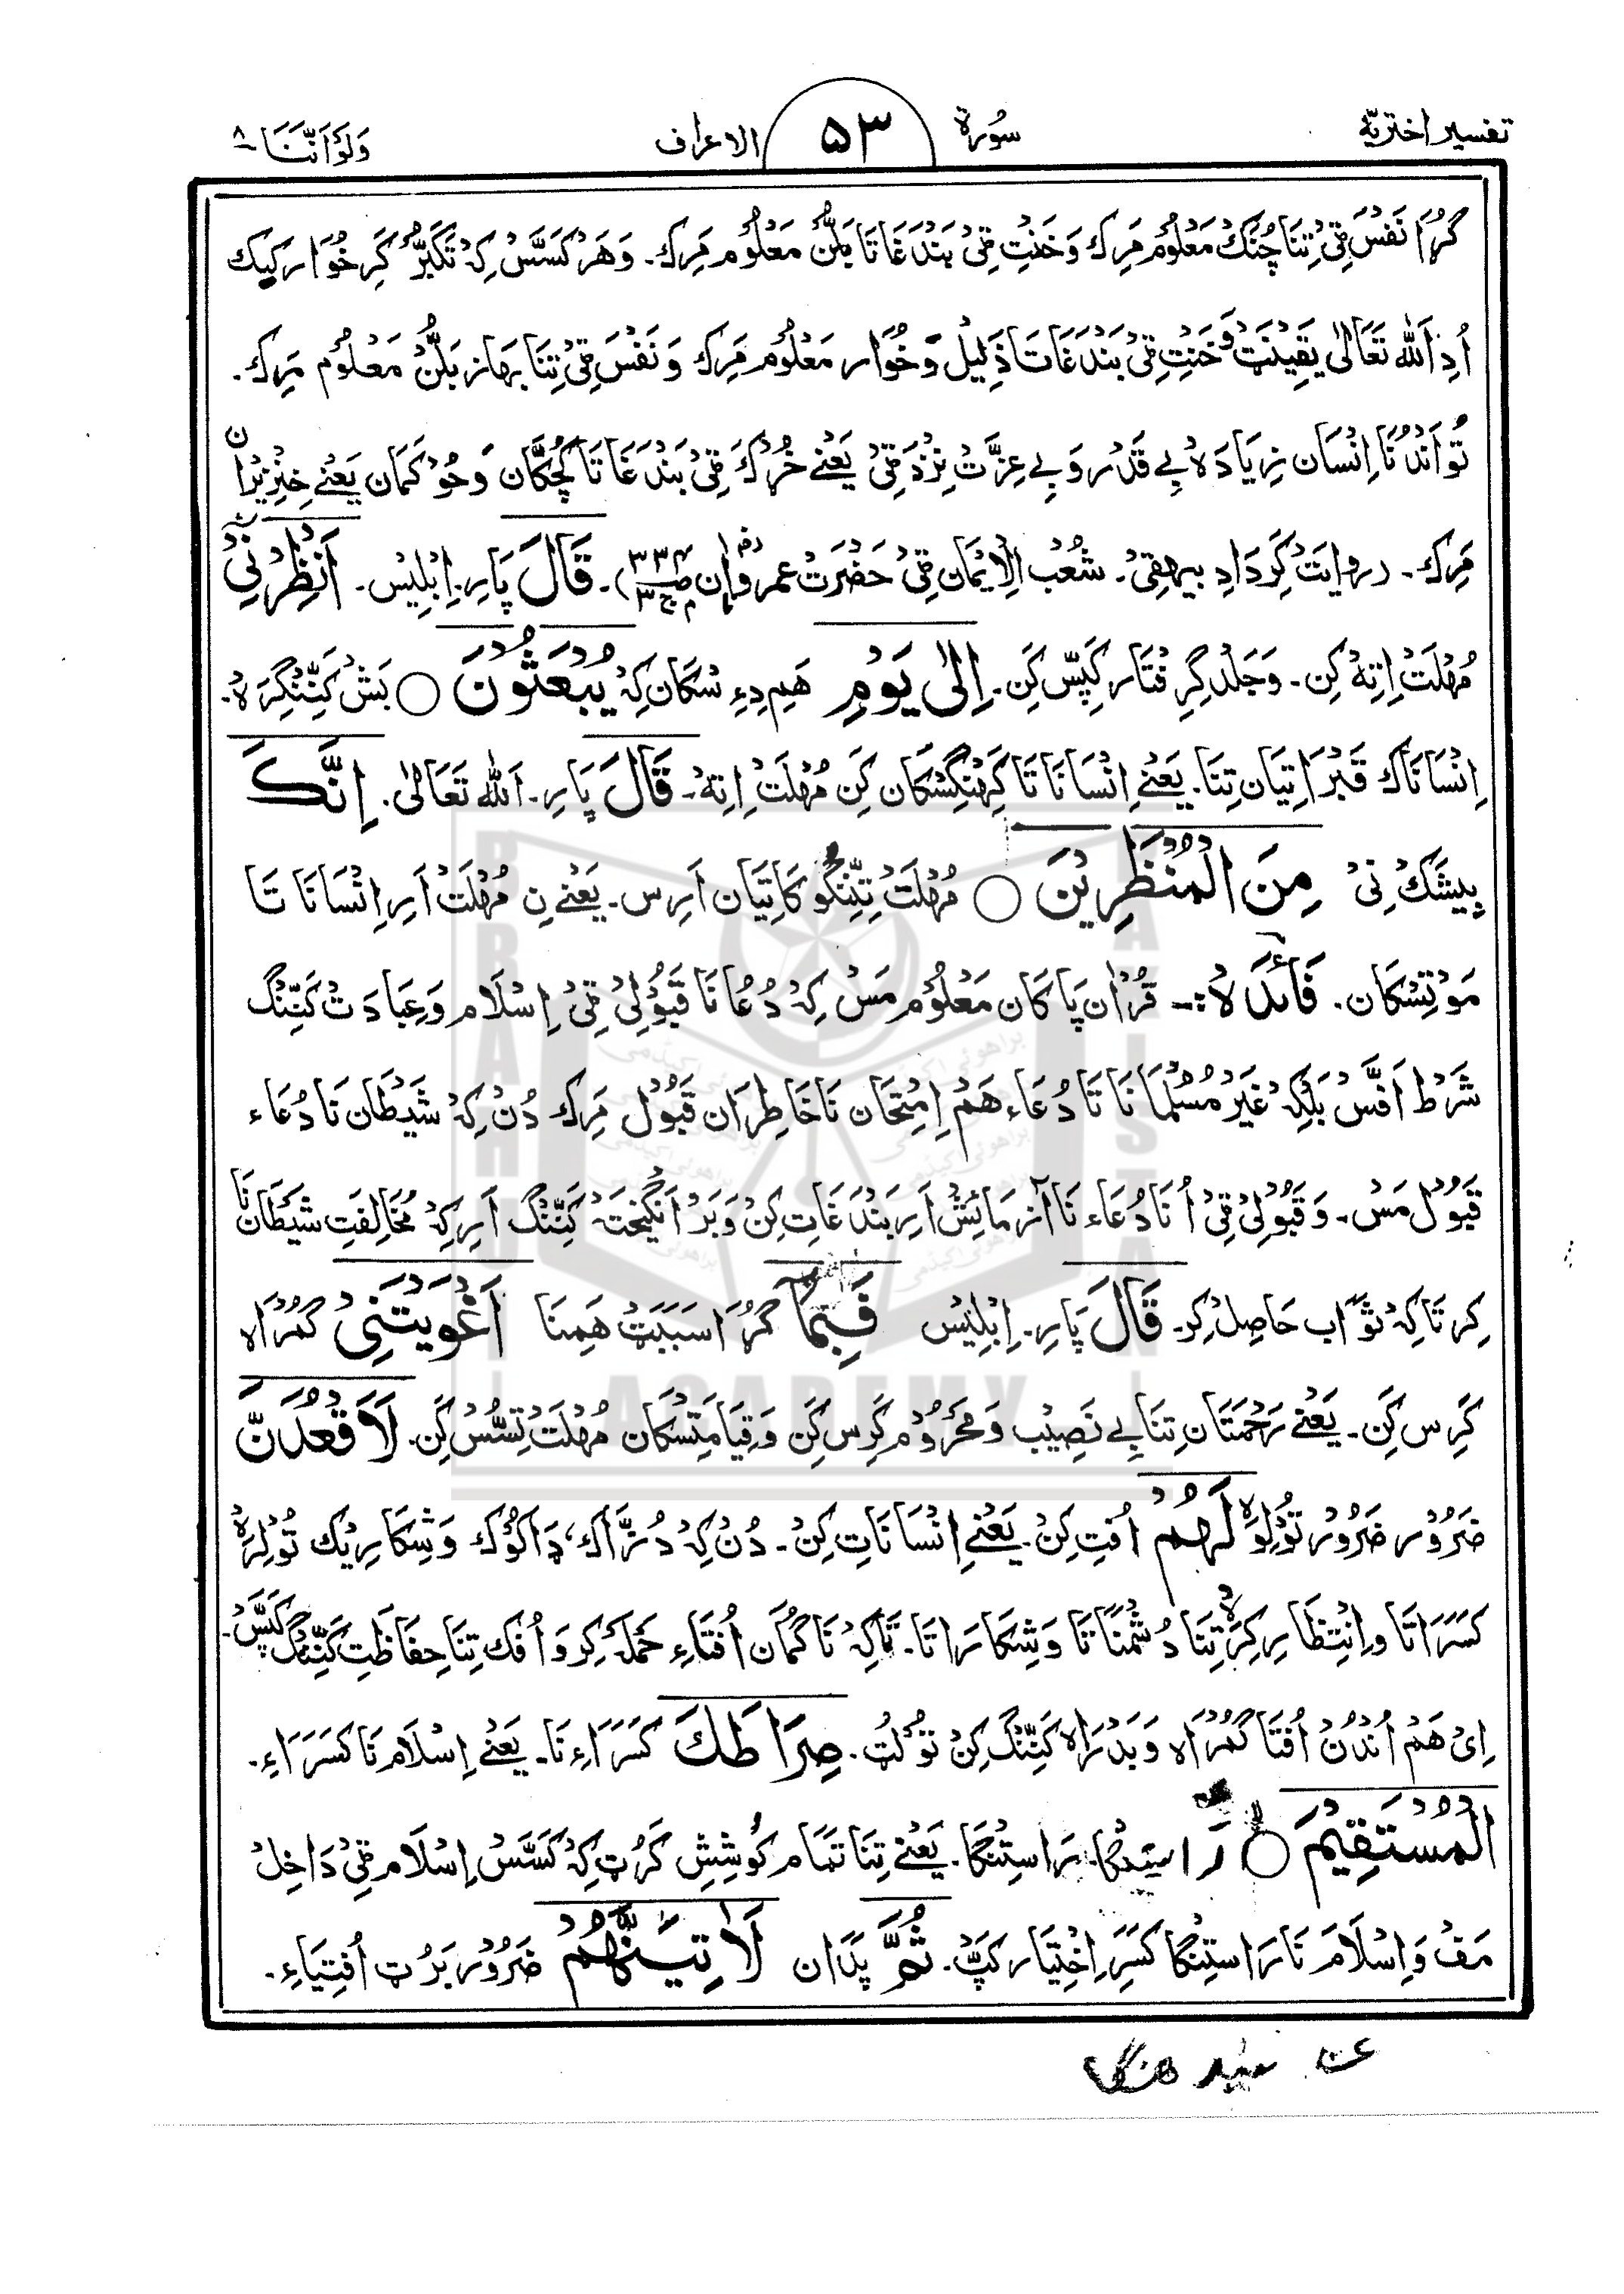 تفسیر اختریّه
سُورة ۵۳ الاعراف
وَلَوْ اَنَّنَا ۸
گُرَا نَفْسَ ٹِیْ تِنَا چُنَکْ مَعْلُوْم مَرِکْ وَخَنْتِ ٹِیْ بَنْدَغَاتَا بَلُّنْ مَعْلُوْم مَرِکْ۔ وَهَرْکَسَّسْ کِہْ تَکَبُّرْ کَرِ خُوَار کِیْکْ
اُدِ اَللّٰه تَعَالٰی یَقِیْنَٹْ وَ خَنْتِ ٹِیْ بَنْدَغَاتَا ذَلِیْلْ وَخُوَار مَعْلُوْم مَرِکْ وَنَفْسَ ٹِیْ تِنَا بَهَاز بَلُّنْ مَعْلُوْم مَرِکْ۔
تُو اَنْدُنَّا اِنْسَان زِیَادَہ بِے قَدْر وَبِے عِزَّتْ نِزْدَ ٹِیْ یَعْنِے خُرُکَ ٹِیْ بَنْدَغَاتَا کُچَّکَّان وَخُوْکَمَان یَعْنِے خِنْزِیْرَان
مَرِکْ۔ رِوَایَتْ کَرِ دَادِ بیهقِیْ۔ شُعْب الْاِیْمَان ٹِیْ حَضْرَتْ عمرؓ وَان (م ج۳ ص۳۳۴)۔ قَالَ پَارِ۔ اِبْلِیْس۔ اَنْظِرْنِیْۤ
مُهْلَتْ اِتِہْ کَنِ۔ وَجَلْد گِرِفْتَار کَپِّس کَنِ۔ اِلٰی یَوْمِ هَمِ دِءِ سْکَان کِہْ یُبْعَثُوْنَ ○ بَشْ کَنِّنْگِرَہ
اِنْسَانَاکْ قَبْرَاتِیَان تِنَا۔ یَعْنِے اِنْسَانَاتَا کَهِنْگِسْکَان کَنِ مُهْلَتْ اِتِہْ۔ قَالَ پَارِ۔ اَللّٰه تَعَالٰی۔ اِنَّکَ
بِیْشَکْ نِیْ مِنَ الْمُنْظَرِیْنَ ○ مُهْلَتْ تِنِّنْگُوْکَاتِیَان اَرِس۔ یَعْنِے نِ مُهْلَتْ اَرِ اِنْسَانَاتَا
مَوْتِسْکَان۔ فَائدہ :- قُرْاٰن پَاکَان مَعْلُوْم مَسْ کِہْ دُعَانَا قَبُوْلِیْ ٹِیْ اِسْلَام وَعِبَادَتْ کَنِّنْگ
شَرْط اَفَّسْ بَلْکِہ غَیْرمُسُلْمَانَاتَا دُعَاء هَمْ اِمْتِحَان نَا خَاطِرَان قَبُوْل مَرِکْ دُنْ کِہْ شَیْطَان نَا دُعَاء
قَبُوْل مَسْ۔ وَقَبُوْلِیْ ٹِیْ اُنَا دُعَاء نَا آزمَائِشْ اَرِ بَنْدَغَاتِ کِنْ وَبَرْاَنْگِیْخْتَہ کَنِّنْگ اَرِ کِہْ مُخَالِفَتِ شَیْطَان نَا
کِر تَاکِہْ ثَوَاب حَاصِلْ کِر۔ قَالَ پَارِ۔ اِبْلِیْس فَبِمَاۤ گُرَا سَبَبَتْ هَمِنَا اَغْوَیْتَنِیْ گُمْرَاہ
کَرِس کَنِ۔ یَعْنِے رَحْمَتَان تِنَا بِے نَصِیْب وَمَحْرُوْم کَرِس کَنِ وَقِیَامَتِسْکَان مُهْلَتْ تِسُّسْ کَنِ۔ لَاَقْعُدَنَّ
ضَرُوْر ضَرُوْر تُوْلِوْہ لَهُمْ اُفْتِ کِنْ۔ یَعْنِے اِنْسَانَاتِ کِنْ۔ دُنْ کِہْ دُزَّاکْ، ڈَاکُوْکْ وَشِکَارِیْکْ تُوْلِرَہ
کَسَرَاتَا وَاِنْتِظَار کِرَہ تِنَا دُشْمَنَاتَا وَشِکَارَاتَا۔ تَاکِہْ نَاگُمَان اُفْتَاءِ حَمْلَہ کِر وَاُفْکْ تِنَا حِفَاظَتِ کَنِّنْگ کَپَّسْ۔
اِیْ هَمْ اُنْدُنْ اُفْتَا گُمْرَاہ وَبَدْرَاہ کَنِّنْگ کِنْ تُوْلُٹ۔ صِرَاطَکَ کَسَرَاءِ نَا۔ یَعْنِے اِسْلَام نَا کَسَرَاءِ۔
الْمُسْتَقِیْمَ ○ رَاسْتِنْگَا۔ یَعْنِے تِنَا تَمَام کُوْشِشْ کَرُٹ کِہْ کَسَّسْ اِسْلَام ٹِیْ دَاخِلْ
مَفْ وَاِسْلَامَ نَا رَاسْتِنْگَا کَسَرِ اِخْتِیَار کَپَّ۔ ثُمَّ پَدَان لَاٰتِیَنَّهُمْ ضَرُوْر بَرُٹ اُفْتِیَاءِ۔